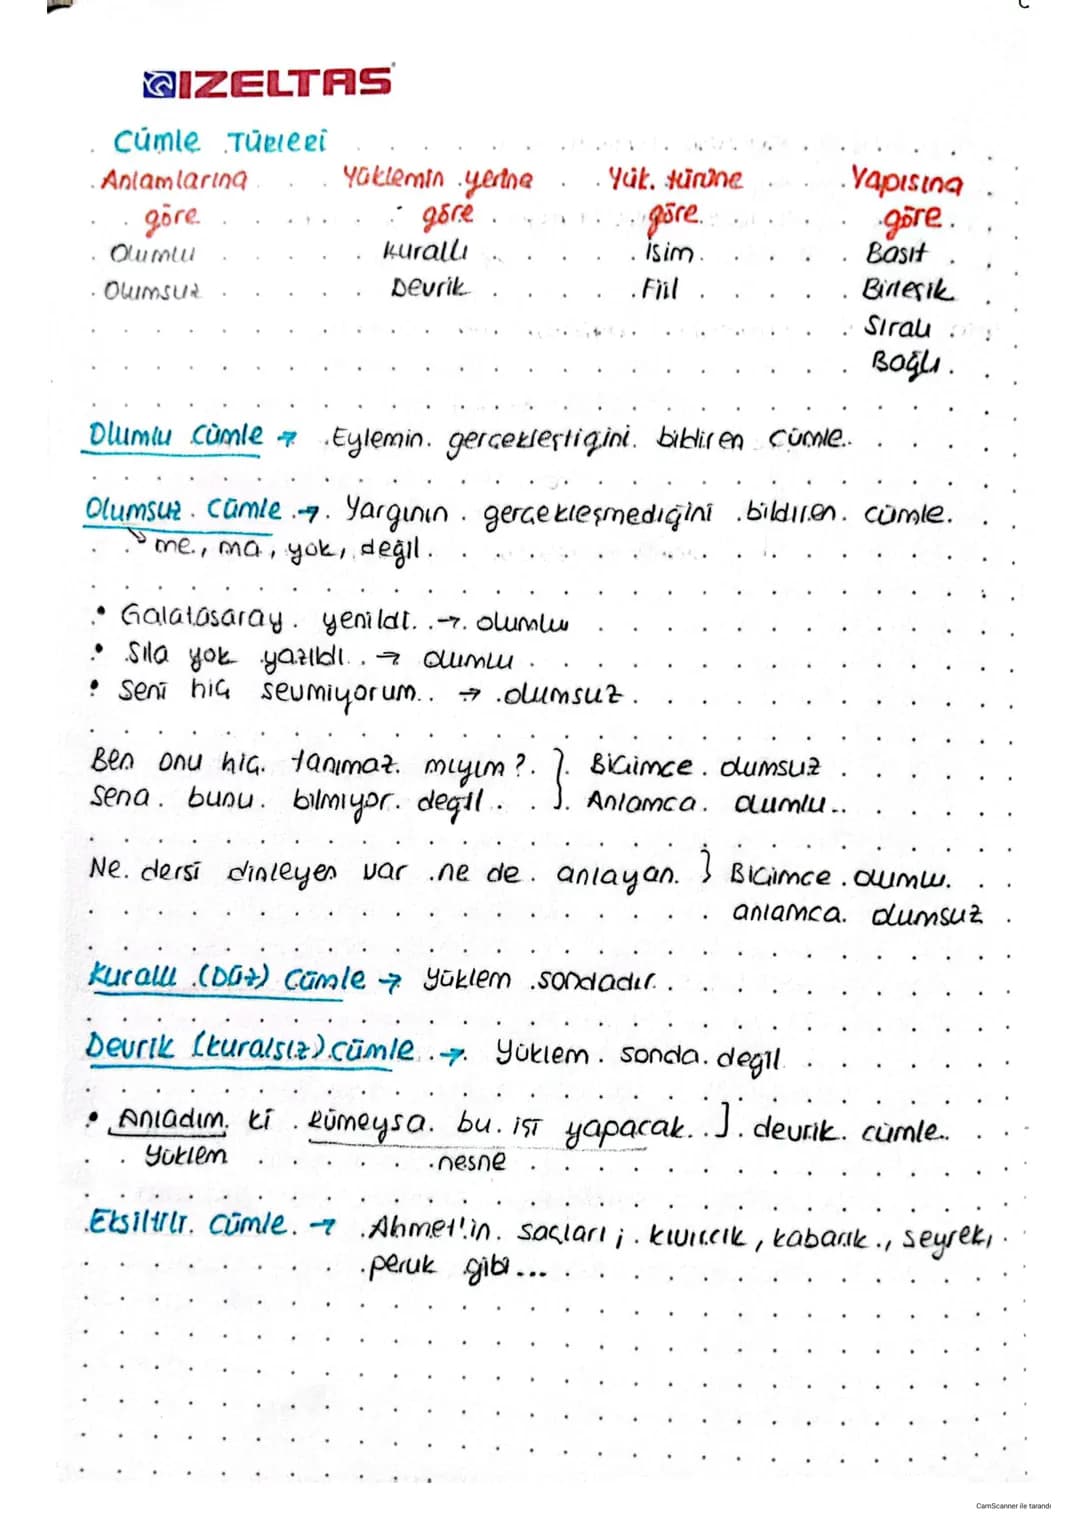 IZELTAS
Cümle Türleri
Anlamlarına göre   Yüklemin yerine göre   Yük. türüne göre   Yapısına göre
Olumlu   Kurallı   İsim   Basit
Olumsuz   Devrik   Fiil   Birleşik
Sıralı
Bağlı
Olumlu Cümle → Eylemin gerçekleştiğini bildiren cümle.
Olumsuz Cümle → Yargının gerçekleşmediğini bildiren cümle.
↳ me, ma, yok, değil
• Galatasaray yenildi. → olumlu
• Sıla yok yazıldı. → olumlu
• Seni hiç sevmiyorum. → olumsuz
Ben onu hiç tanımaz mıyım? } Biçimce olumsuz
Sena bunu bilmiyor değil. } Anlamca olumlu
Ne dersi dinleyen var ne de anlayan. } Biçimce olumlu
anlamca olumsuz
Kurallı (Düz) Cümle → Yüklem sondadır.
Devrik (kuralsız) cümle → Yüklem sonda değil
• Anladım ki Rümeysa bu işi yapacak. ] devrik cümle
Yüklem   nesne
Eksiltili Cümle → Ahmet'in saçları; kıvırcık, kabarık, seyrek,
peruk gibi...
CamScanner ile tarandı